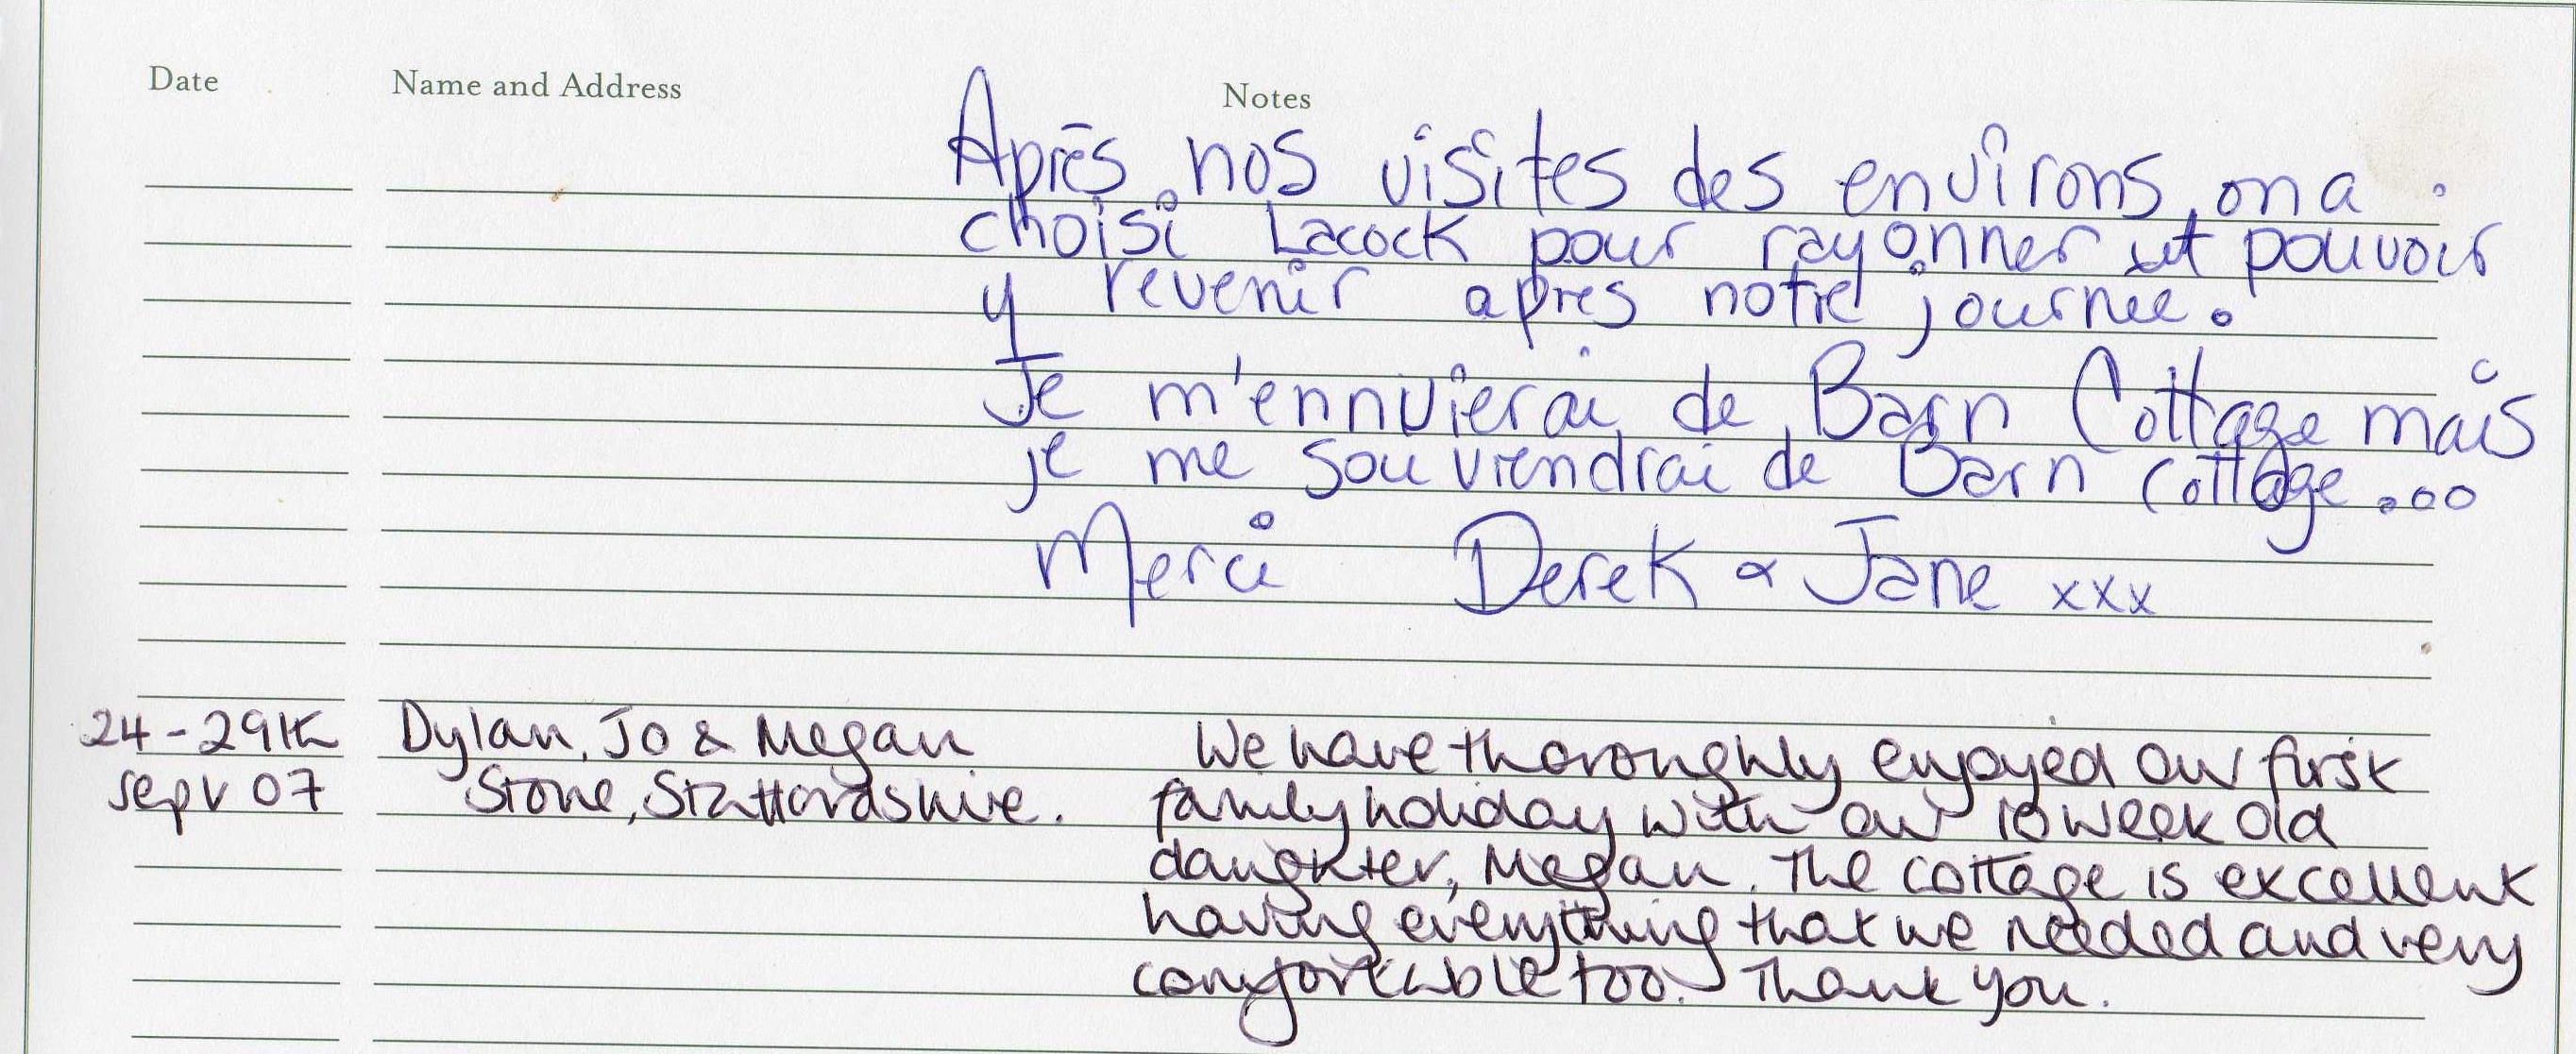 Date Name and Address Notes
Après nos visites des environs, on a
choisi Lacock pour rayonner et pouvoir
y revenir après notre journee.
Je m'ennuierai de Barn Cottage mais
je me souviendrai de Barn Cottage...
Merci Derek & Jane xxx
24-29th Dylan, Jo & Megan We have thoroughly enjoyed our first
Sept 07 Stone, Staffordshire. family holiday with our 10 week old
daughter, Megan. The cottage is excellent
having everything that we needed and very
comfortable too. Thank you.